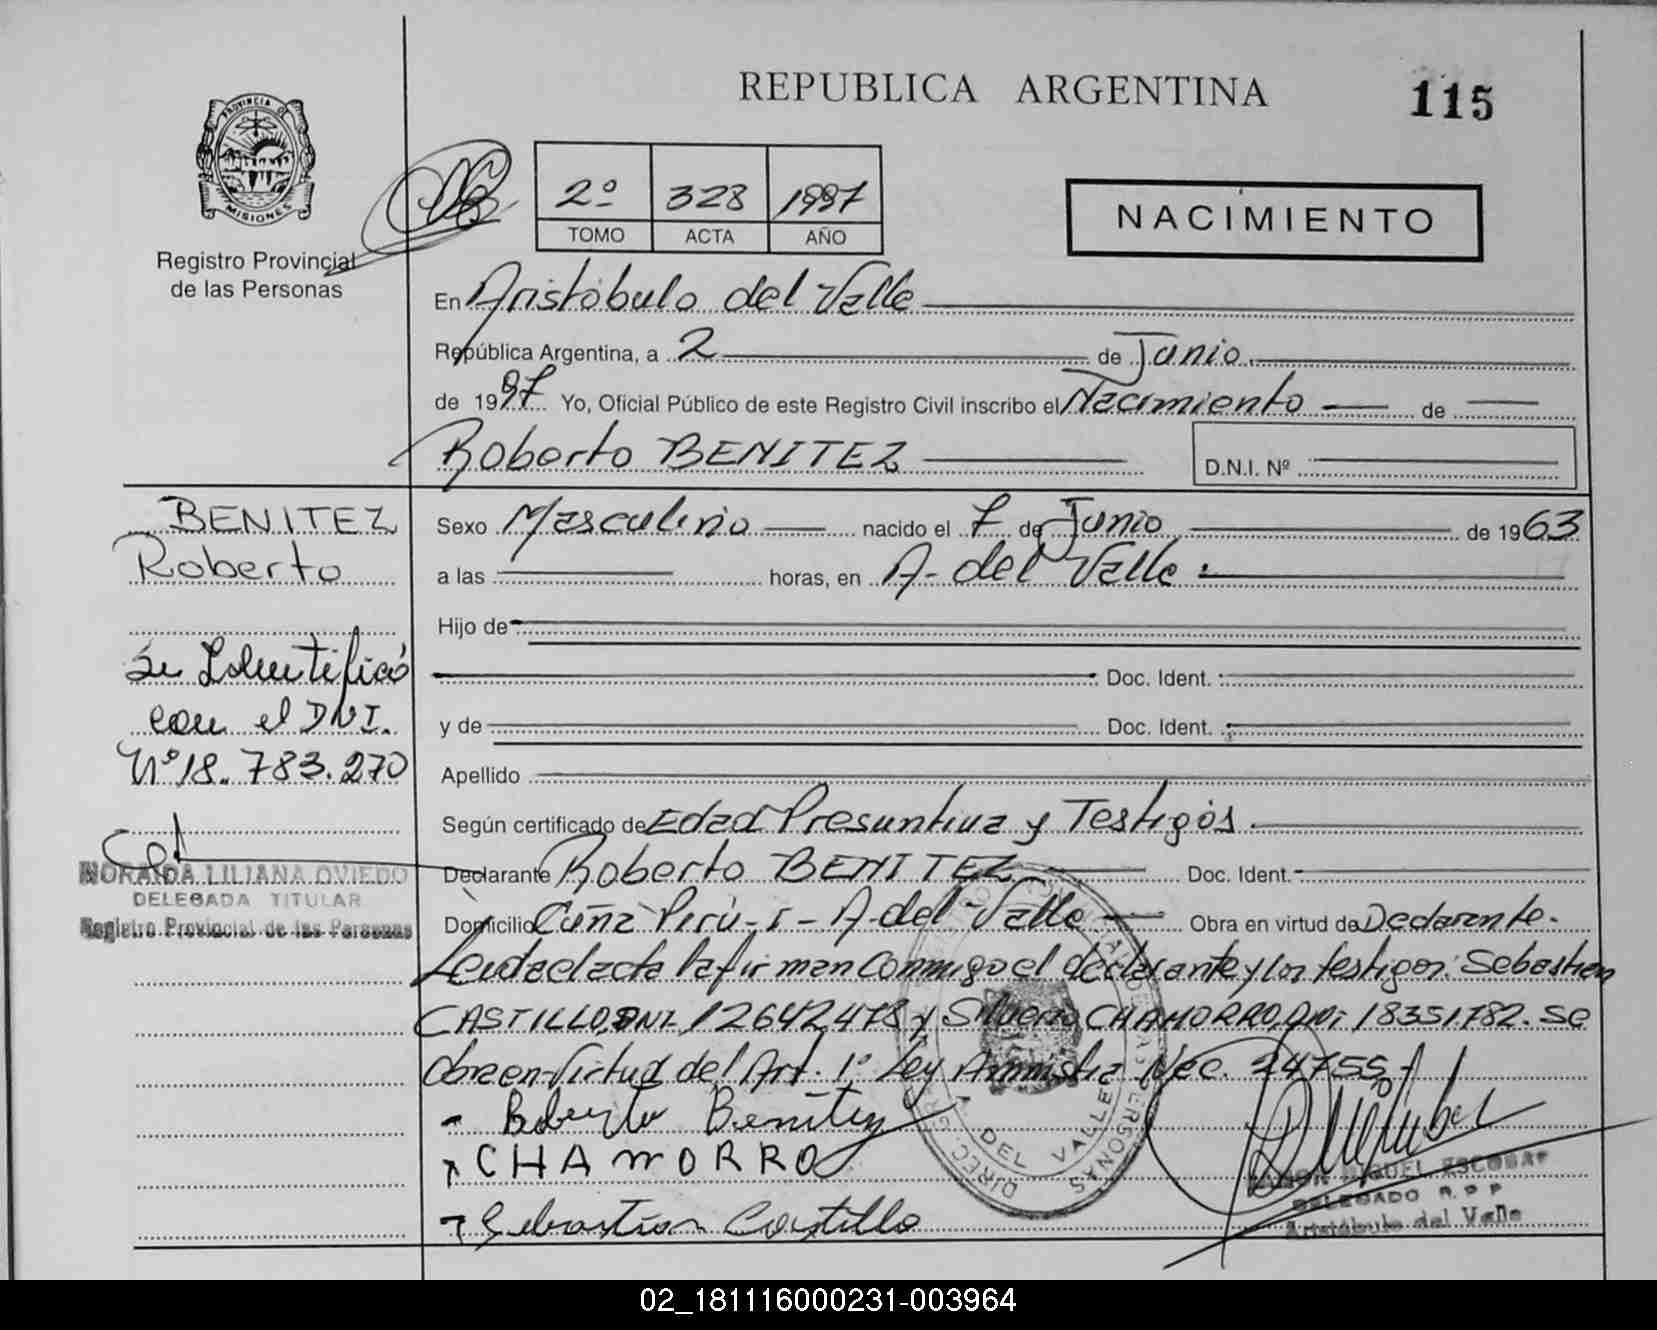 REPUBLICA ARGENTINA
115
PROVINCIA DE
MISIONES
Registro Provincial
de las Personas
2º 328 1997
TOMO ACTA AÑO
NACIMIENTO
En Aristóbulo del Valle
República Argentina, a 2 de Junio
de 1997 Yo, Oficial Público de este Registro Civil inscribo el Nacimiento de
Roberto BENITEZ
D.N.I. Nº
BENITEZ
Roberto
Se Identificó
con el DNI.
Nº 18.783.270
NORAIDA LILIANA OVIEDO
DELEGADA TITULAR
Registro Provincial de las Personas
Sexo Masculino nacido el 7 de Junio de 1963
a las horas, en A. del Valle
Hijo de
Doc. Ident.
y de Doc. Ident.
Apellido
Según certificado de Edad Presuntiva y Testigos
Declarante Roberto BENITEZ Doc. Ident.
Domicilio Cuña Pirú-I- A. del Valle Obra en virtud de Declarante.
Leida el acta la firman conmigo el declarante y los testigos: Sebastian
CASTILLO, DNI. 12642478 y Silverio CHAMORRO, DNI 18351782. Se
obra en Virtud del Art. 1º Ley Amnistia Nac. 24755
- Roberto Benitez
CHAMORRO
Sebastian Castillo
DEL VALLE
MIGUEL ESCOBAR
DELEGADO R.P.P
Aristóbulo del Valle
02_181116000231-003964